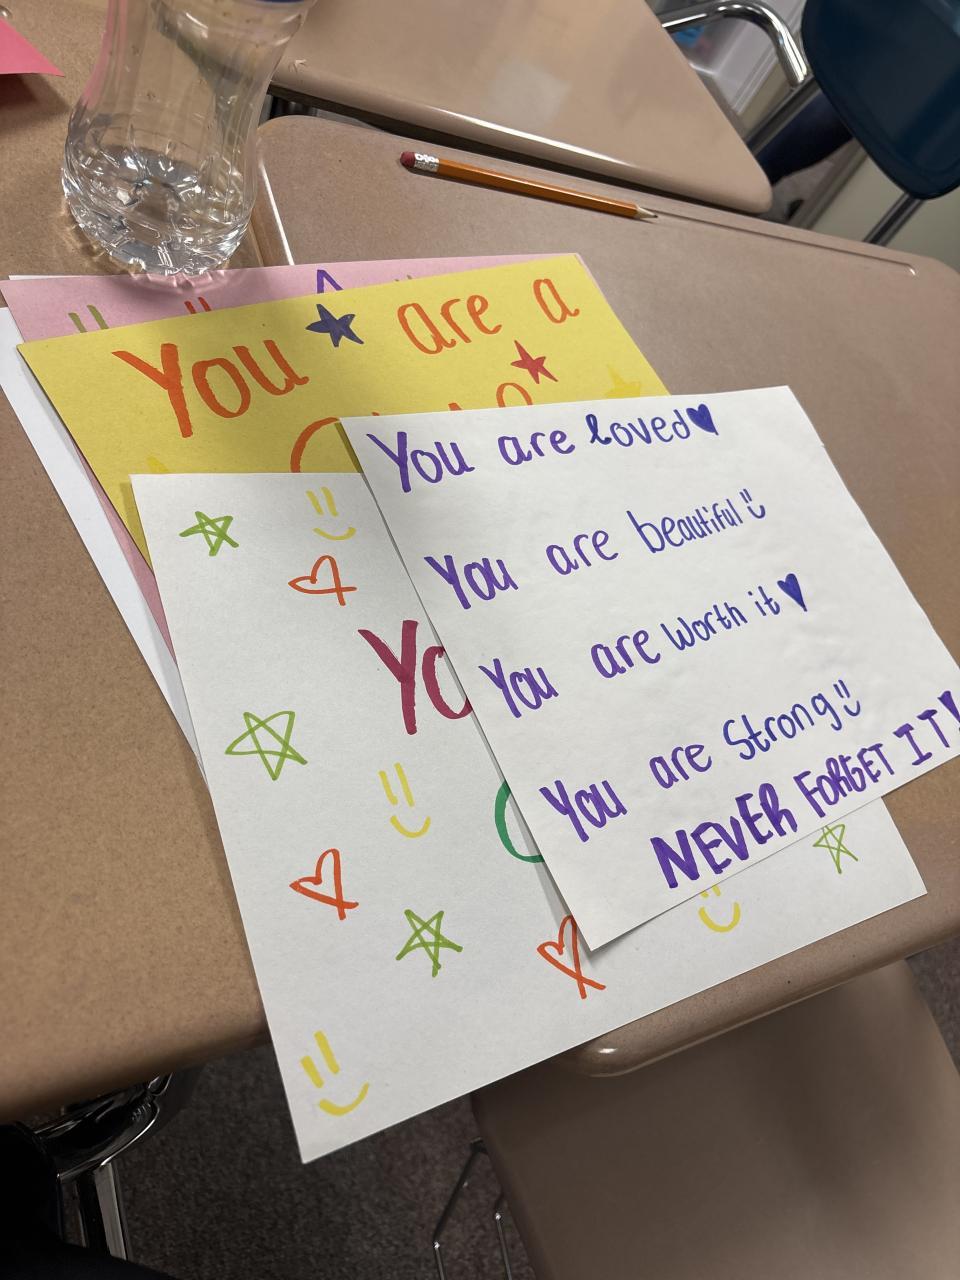 You are a
You are loved
You are beautiful
You are worth it
You are Strong
NEVER FORGET IT!